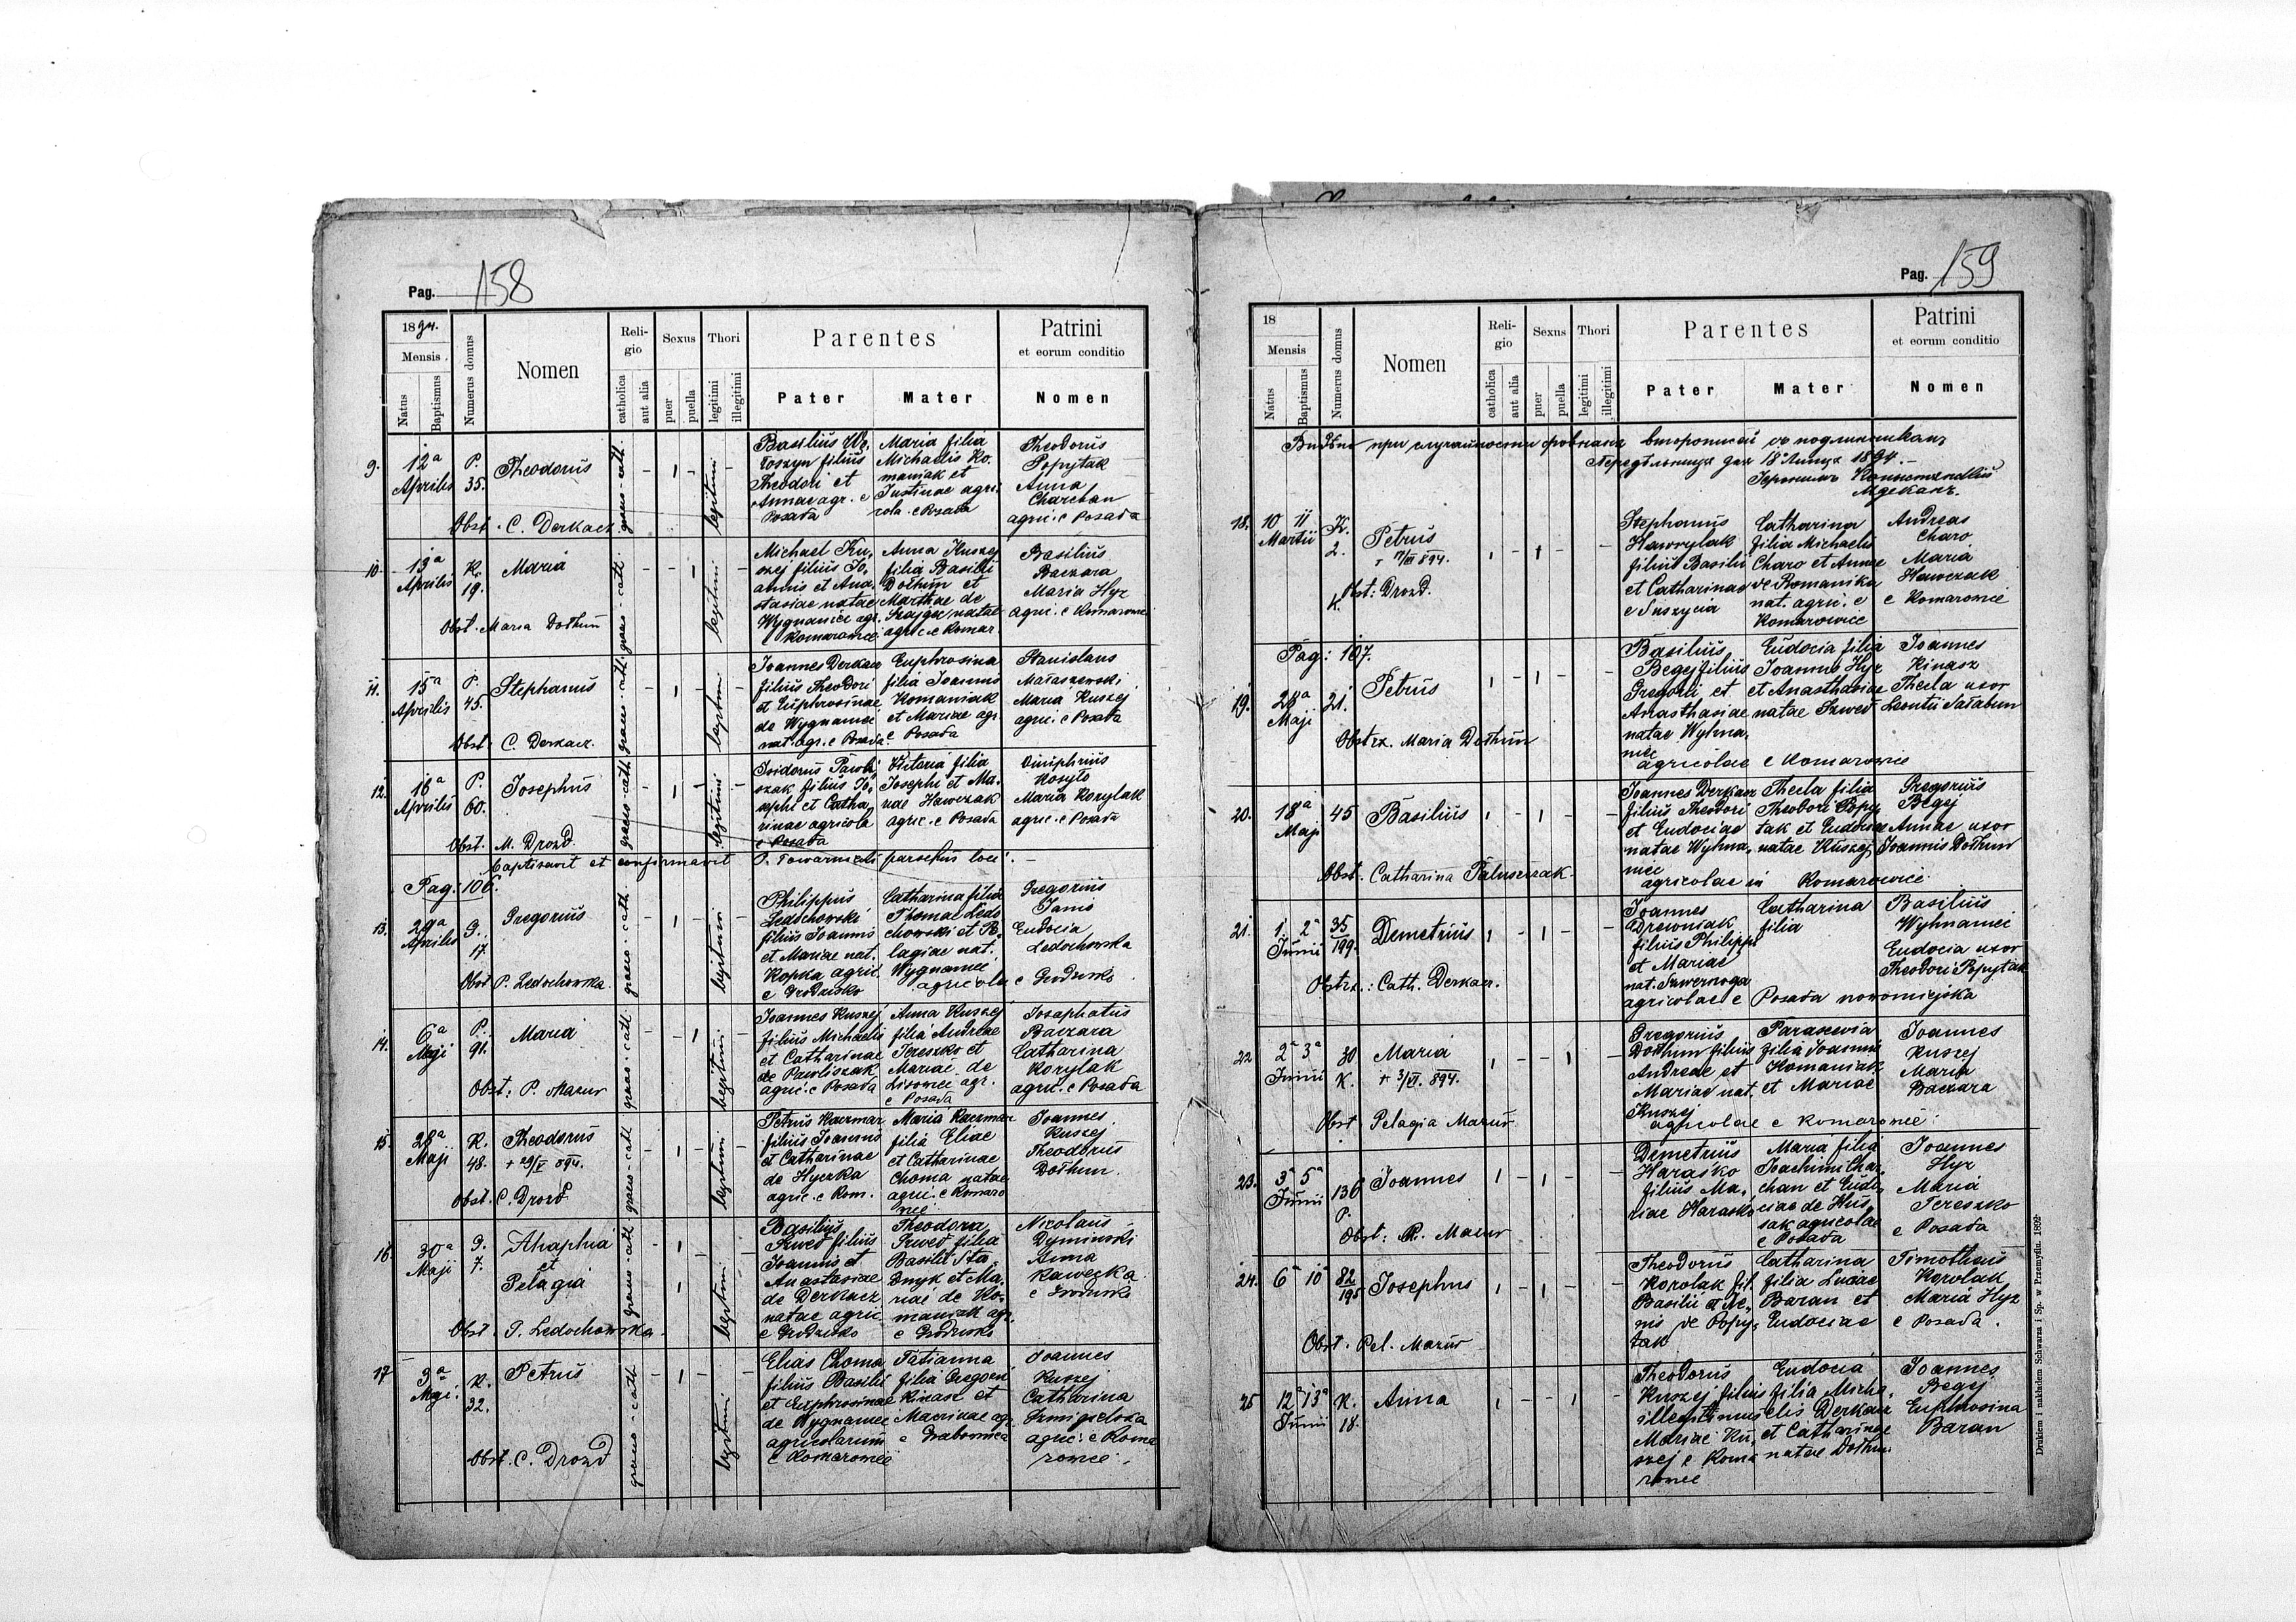 Pag. 158
1894.
Mensis
Natus
Baptismus
Numerus domus
Nomen
Reli-
gio
catholica
aut alia
Sexus
puer
puella
Thori
legitimi
illegitimi
Parentes
Pater
Mater
Patrini
et eorum conditio
Nomen
9. 12a Aprilis P. 35. Theodorus
graeco-cath. legitimi
Basilius Wo-
łoszyn filius
Theodori et
Annae agr. e
Posada
Maria filia
Michaelis Ko-
maniak et
Justinae agri-
cola e Posada
Theodorus
Popytak
Anna
Charchan
agric. e Posada
Obst. C. Derkacz
10. 13a Aprilis K. 19. Maria
graeco-cath. legitimi
Michael Ku-
szej filius Jo-
annis et Ana-
stasiae natae
Wygnaniec agr.
Komarowice
Anna Kuszej
filia Basilii
Dołhun et
Marthae de
Szajga natae
agric. e Komar.
Basilius
Baczara
Maria Hyz
agric. e Komarowice
Obst. Maria Dołhun
11. 15a Aprilis P. 45. Stephanus
graeco-cath. legitimi
Joannes Derkacz
filius Theodori
et Euphrosinae
de Wygnaniec
nat. agr. e Posada
Euphrosina
filia Joannis
Komaniak
et Mariae agr.
e Posada
Stanislaus
Małaszewski
Maria Kuszej
agric. e Posada
Obst. C. Derkacz.
12. 16a Aprilis P. 60. Josephus
graeco-cath. legitimi
Isidorus Pawli-
szak filius Jo-
sephi et Catha-
rinae agricola
e Posada
Victoria filia
Josephi et Ma-
riae Hawczak
agric. e Posada
Onuphrius
Kosyło
Maria Korylak
agric. e Posada
Obst. M. Drozd.
baptisavit et confirmavit P. Towarnicki parochus loci.
Pag: 106.
13. 29a Aprilis G. 17. Gregorius
graeco-cath. legitimi
Philippus
Ledochowski
filius Joannis
et Mariae nat.
Kopka agric.
e Grodzisko
Catharina filia
Thomae Ledo-
chowski et Pe-
lagiae nat.
Wygnaniec
agricola e Grodzisko
Gregorius
Janio
Eudocia
Ledochowska
Obst. P. Ledochowska.
14. 6a Maji P. 91. Maria
graeco-cath legitimi
Joannes Kuszej
filius Michaelis
et Catharinae
de Pawliszak
agric. e Posada
Anna Kuszej
filia Andreae
Tereszko et
Mariae de
Lisowiec agr.
e Posada
Josaphatus
Baczara
Catharina
Korylak
agric. e Posada
Obst: P. Mazur
15. 28a Maji K. 48. Theodorus
+ 29/V 894.
graeco-cath legitimi
Petrus Kaczmar
filius Joannis
et Catharinae
de Hyczka
agric. e Kom.
Maria Kaczmar
filia Eliae
et Catharinae
Choma natae
agric. e Komaro
wice
Joannes
Kuszej
Theodorus
Dołhun
Obst. C. Drozd.
16. 30a Maji G. 7. Ahaphia
et
Pelagia
graeco-cath legitimi
Basilius
Szwed filius
Joannis et
Anastasiae
de Derkacz
natae agric.
e Grodzisko
Theodora
Szwed filia
Basilii Sta-
dnyk et Ma-
riae de Ko-
maniak agr.
e Grodzisko
Nicolaus
Dyminski
Anna
Kawecka
e Grodzisko
Obst. P. Ledochowska.
17 3a Maji K. 32. Petrus
graeco-cath legitimi
Elias Choma
filius Basilii
et Euphrosinae
de Wygnaniec
agricolarum
e Komarowice
Tatianna
filia Gregorii
Kinasz et
Macrinae agr.
e Grabownica
Joannes
Kuszej
Catharina
agric. e Koma
rowice.
Obst. C. Drozd
Pag. 159
18
Mensis
Natus
Baptismus
Numerus domus
Nomen
Reli-
gio
catholica
aut alia
Sexus
puer
puella
Thori
legitimi
illegitimi
Parentes
Pater
Mater
Patrini
et eorum conditio
Nomen
18. 10 11 Martii K. 2. Petrus
+ 17/III 894.
Stephanus
Hawrylak
filius Basilii
et Catharinae
e Suszycia
Catharina
filia Michaelis
Charo et Annae
de Romanika
nat. agric. e
Komarowice
Andreas
Charo
Maria
Hawczak
e Komarowice
Obst: Drozd.
Pag: 107.
19. 28a Maji 21. Petrus
Basilius
Begej filius
Gregorii et
Anasthasiae
natae Wyhna-
niec
Eudocia filia
Joannis Hyz
et Anasthasiae
natae Szwed
Joannes
Kinasz
Thecla uxor
Leontii Sałabun
agricolae e Komarowice
Obstrx. Maria Dołhun
20. 18a Maji 45 Basilius
Joannes Derkacz
filius Theodori
et Eudociae
natae Wyhna-
niec
Thecla filia
Theodori Popy-
tak et Eudociae
natae Kuszej
Gregorius
Begej
Annae uxor
Joannis Dołhun
agricolae in Komarowice
Obst. Catharina Paluszczak.
21. 1. 2a Junii 35/199. Demetrius
Joannes
Drewniak
filius Philippi
et Mariae
nat. Szwernoga
Catharina
filia
Basilius
Wyhnaniec
Eudocia uxor
Theodori Popytak
agricolae e Posada nowomiejska
Obstrx.: Cath. Derkacz.
22 2a 3a Junii 30 K. Maria
+ 3/VI. 894.
Gregorius
Dołhun filius
Andreae et
Mariae nat.
Kuszej
Parascevia
filia Joannis
Komaniak
et Mariae
Joannes
Kuszej
Maria
Baczara
agricolae e Komarowice
Obst Pelagia Mazur
23. 3a 5a Junii 136 P. Joannes
Demetrius
Haraśko
filius Ma-
riae Haraśko
Maria filia
Joachimi Char-
chan et Eudo-
ciae de Hus-
sak agricolae
e Posada
Joannes
Hyz
Maria
Tereszko
e Posada
Obst: P. Mazur
24. 6a 10a 82/195 Josephus
Theodorus
Korolak fil.
Basilii et An-
nis de Popy-
tak
Catharina
filia Lucae
Baran et
Eudociae
Timotheus
Korolak
Maria Hyz
e Posada.
Obst. Pel. Mazur
25 12a 13a Junii K. 18. Anna
Theodorus
Kuszej filius
illegitimus
Mariae Ku-
szej e Koma
rowice
Eudocia
filia Micha-
elis Derkacz
et Catharinae
natae Dołhun
Joannes
Begej
Euphrosina
Baran
Drukiem i nakładem Schwarza i Sp. w Przemyślu. 1892.